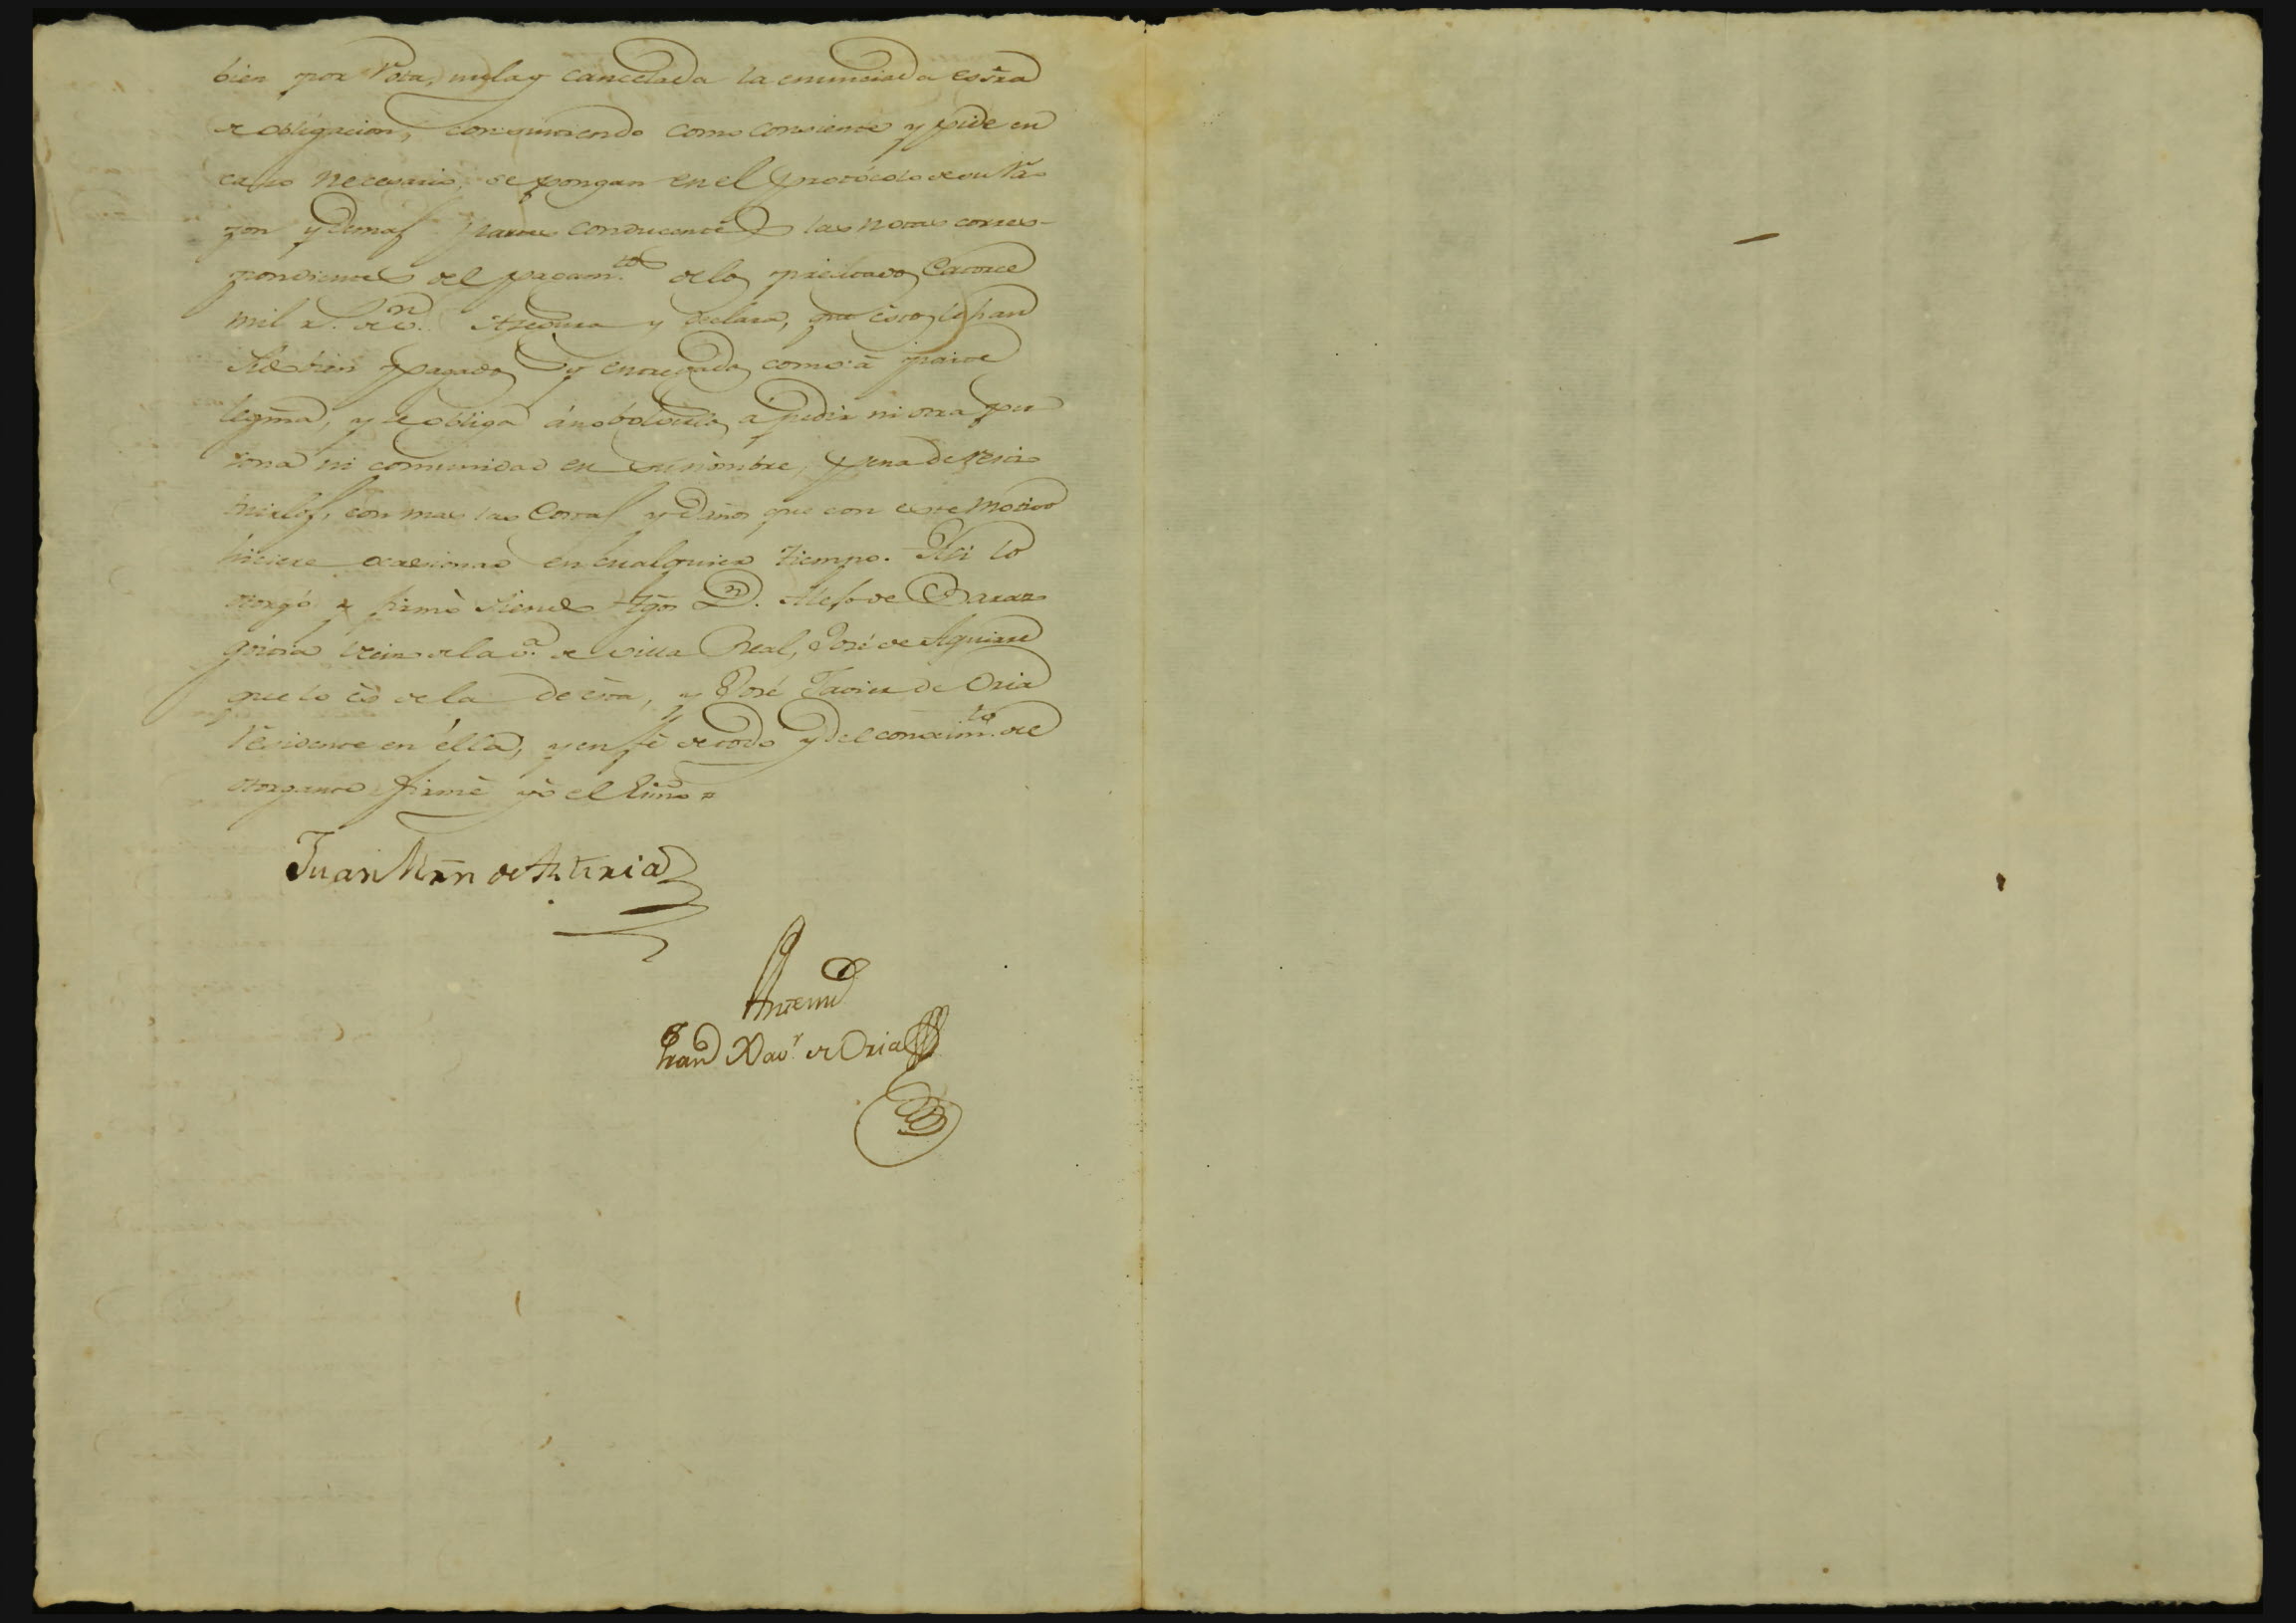 bien por rota, nula y cancelada la enunciada essrã
de obligacion, consintiendo como consiente y pide en
caso necesario, se pongan en el protócolo de su Ra
zon y demas partes conducentes las notas corres-
pondientes del pagam.to de los precitados Catorce
mil r.s de v.n Asegura y declara, que estos le han
sido bien pagados y entregados como à parte
legma, y se obliga á no bolverlos á pedir ni otra per
sona ni comunidad en su nombre, pena de resti
tuirlos, con mas las Costas y Daños que con este motivo
hiciere ocasionar en cualquiera tiempo. Asi lo
otorgó y firmó siendo tgõs D.n de Baraz
goitia vecino de la v.a de Villa Real, José de Aguirre
que lo es de la de esta, y José Javier de Oria
residente en élla, y en fé de todo y del conocim.to del
otorgante firmé yo el Ssno =
Juan Mrñ de
Antemi
Fran Xav.r de Oria